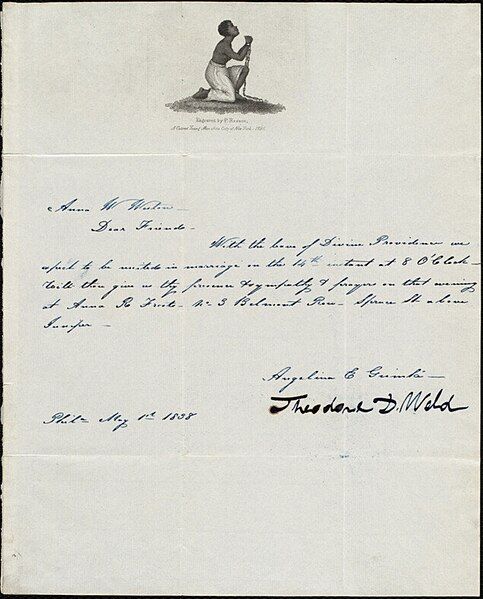 Engraved by P. Reason,
A Colored Young Man of the City of New York. 1835.
Anna W Weston –
Dear Friend –
With the leave of Divine Providence we
expect to be united in marriage on the 14th instant at 8 O'Clock –
Wilt thou give us thy presence & sympathy & prayers on that evening
at Anna R Frost's – No 3 Belmont Row – Spruce St above
Juniper –
Angelina E Grimké –
Theodore D. Weld
Phila May 1st 1838